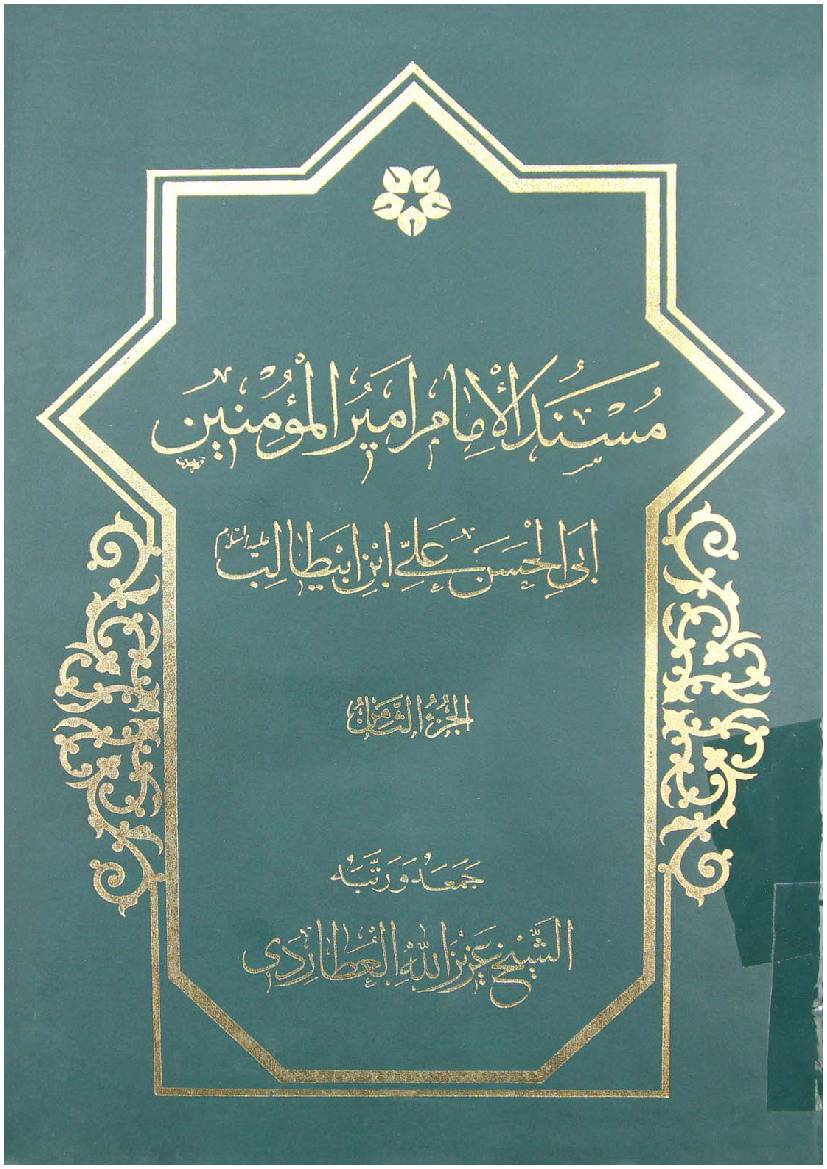 مُسْنَدُ الْإِمَامِ أَمِيرُ الْمُؤْمِنِين
ابَى الْحَسَن عَلِىّ ابْنِ ابيطَالِب عليه السلام
الجُزءُ الثَّامِنُ
جَمَعَهُ وَرَتَّبَهُ
الشَّيْخ عَزِيزُ اللهِ العُطَارِدِى